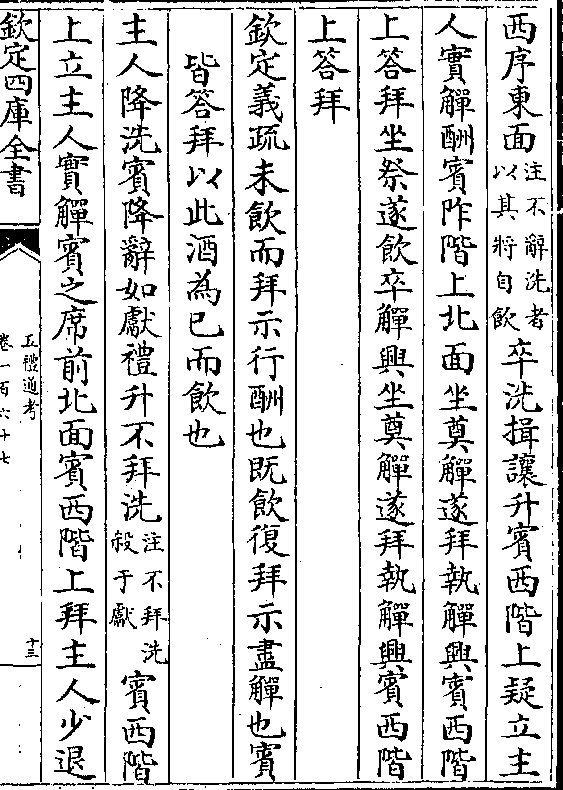 西序東面注不辭洗者以其將自飲卒洗揖讓升賓西階上疑立主
人實觶酬賓阼階上北面坐奠觶遂拜執觶興賓西階
上答拜坐祭遂飲卒觶興坐奠觶遂拜執觶興賓西階
上答拜
欽定義疏未飲而拜示行酬也既飲復拜示盡觶也賓
皆答拜以此酒為已而飲也
主人降洗賓降辭如獻禮升不拜洗注不拜洗殺于獻賓西階
上立主人實觶賓之席前北面賓西階上拜主人少退
欽定四庫全書
五禮通考
卷一百六十七
十三